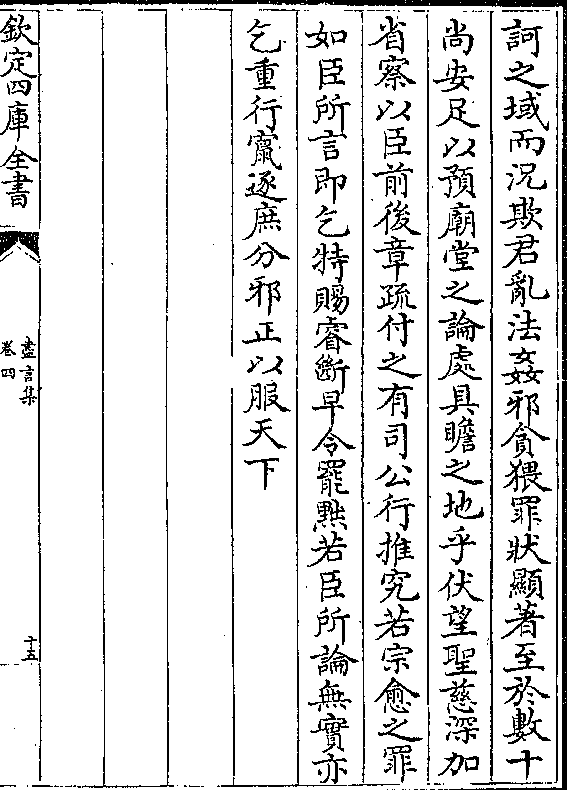 訶之域而況欺君亂法姦邪貪猥罪狀顯著至於數十
尚安足以預廟堂之論處具瞻之地乎伏望聖慈深加
省察以臣前後章疏付之有司公行推究若宗愈之罪
如臣所言即乞特賜睿斷早令罷黜若臣所論無實亦
乞重行竄逐庶分邪正以服天下
欽定四庫全書
盡言集
卷四
十五